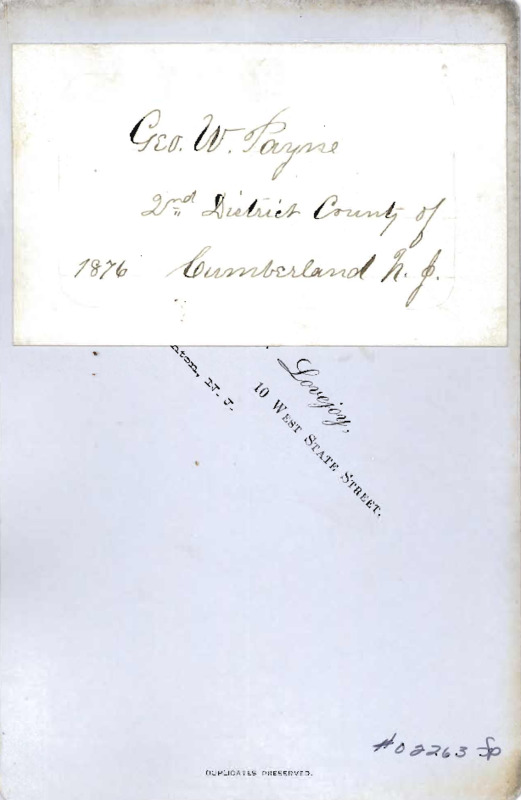 Geo. W. Payne
2nd District County of
1876 Cumberland N. J.
Lovejoy,
10 West State Street.
nton, N. J.
#02263 Sp
DUPLICATES PRESERVED.